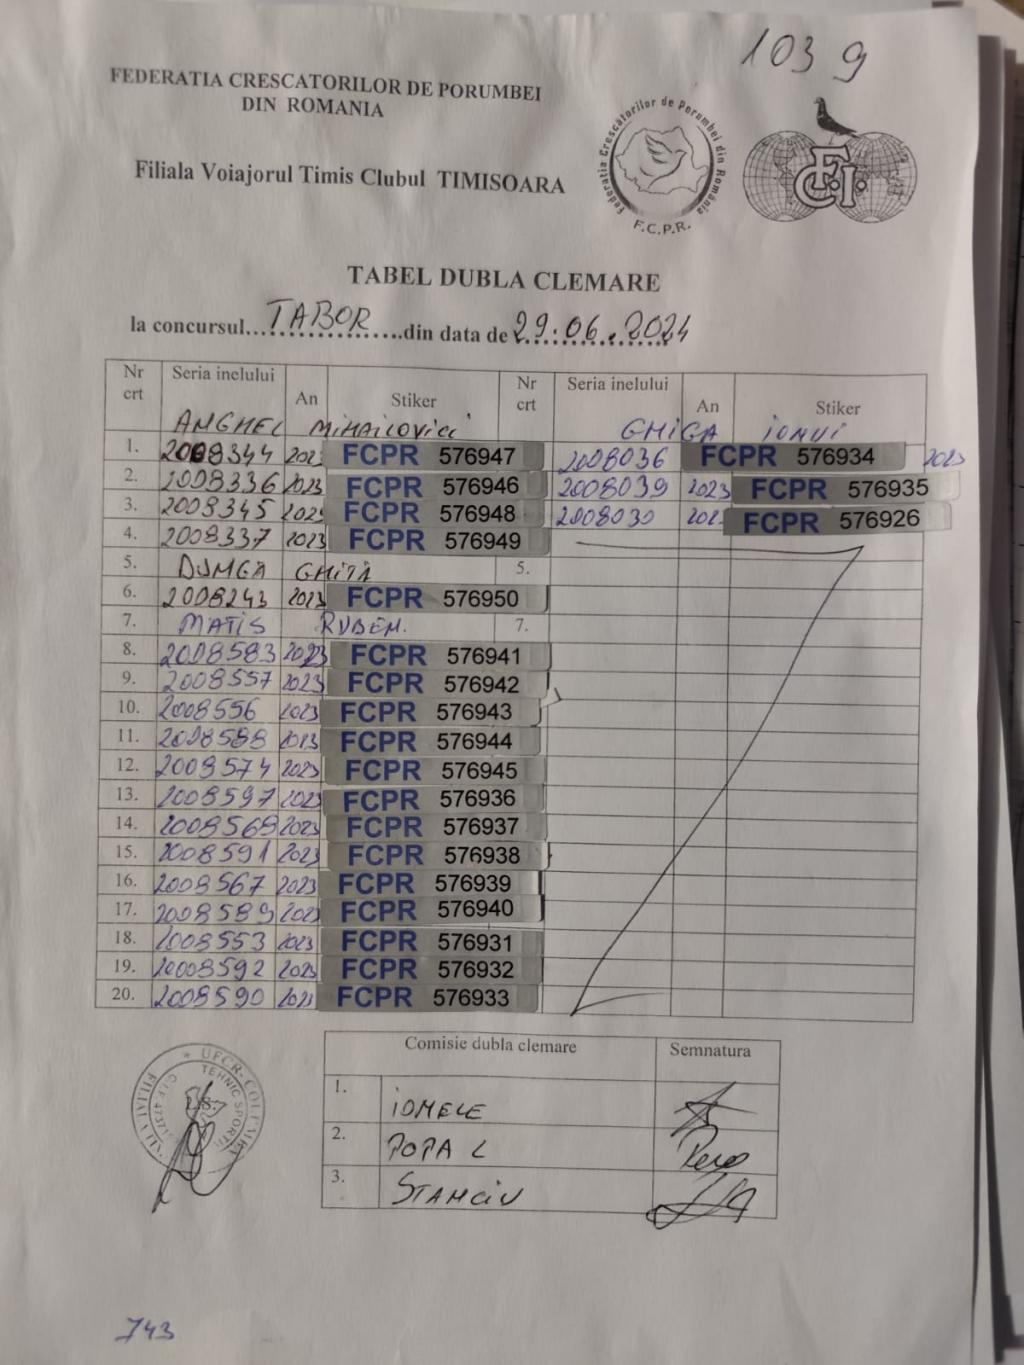 103 g
FEDERATIA CRESCATORILOR DE PORUMBEI
DIN ROMANIA
Filiala Voiajorul Timis Clubul TIMISOARA
Federatia Crescatorilor de Porumbei din România
F.C.P.R.
F.C.I.
TABEL DUBLA CLEMARE
la concursul...TABOR...din data de 29.06.2024
Nr crt Seria inelului An Stiker Nr crt Seria inelului An Stiker
ANGHEL MIHAILOVICI GHIGA IONUI
1. 2008344 2023 FCPR 576947 2008036 FCPR 576934 2023
2. 2008336 2023 FCPR 576946 2008039 2023 FCPR 576935
3. 2008345 2023 FCPR 576948 2008030 202 FCPR 576926
4. 2008337 2023 FCPR 576949
5. DUMGA GHITA 5.
6. 2008243 2023 FCPR 576950
7. MATIS RUBEM. 7.
8. 2008583 2023 FCPR 576941
9. 2008557 2023 FCPR 576942
10. 2008556 2023 FCPR 576943
11. 2008588 2023 FCPR 576944
12. 2008574 2023 FCPR 576945
13. 2008597 2023 FCPR 576936
14. 2008568 2023 FCPR 576937
15. 2008591 2023 FCPR 576938
16. 2008567 2023 FCPR 576939
17. 2008589 2023 FCPR 576940
18. 2008553 2023 FCPR 576931
19. 2008592 2023 FCPR 576932
20. 2008590 2023 FCPR 576933
Comisie dubla clemare Semnatura
1. IOMELE
2. POPA L
3. STAMCIU
UFCR-COLUMBA
TEHNIC SPORTI
FILIALA
L.S.
743